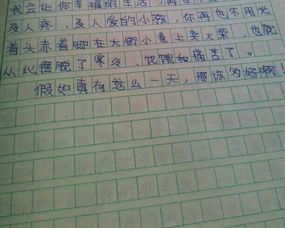 我会让你幸福的生活,再也
没人疼、没人爱的小孩,你再也不用光
着头赤着脚在大街小巷上卖火柴,也就
从此摆脱了寒冷、饥饿和痛苦了。
假如真有这么一天,那该多好啊!